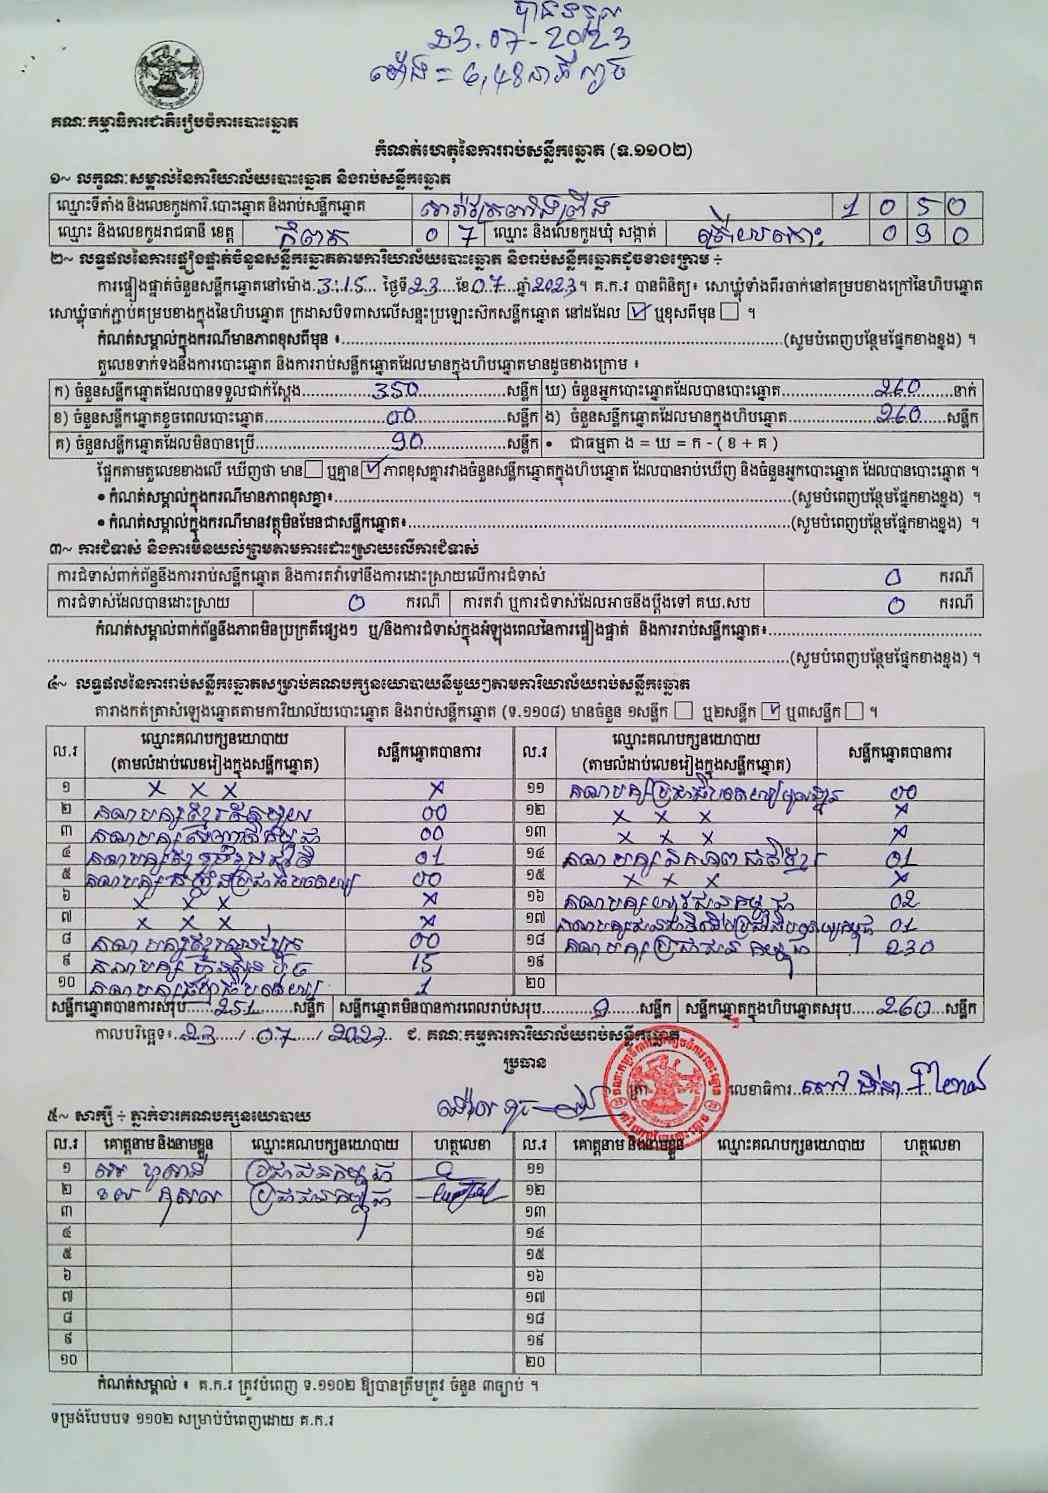 បានទទួល
23.07-2023
ម៉ោង = 6,48នាទី ល្ងាច
គណៈកម្មាធិការជាតិរៀបចំការបោះឆ្នោត
កំណត់ហេតុនៃការរាប់សន្លឹកឆ្នោត (ទ.១១០២)
១~ លក្ខណៈសម្គាល់នៃការិយាល័យបោះឆ្នោត និងរាប់សន្លឹកឆ្នោត
ឈ្មោះទីតាំង និងលេខកូដការិ.បោះឆ្នោត និងរាប់សន្លឹកឆ្នោត 1 0 5 0
ឈ្មោះ និងលេខកូដរាជធានី ខេត្ត កំពត 0 7 ឈ្មោះ និងលេខកូដឃុំ សង្កាត់ ត្រើយកោះ 0 9 0
២~ លទ្ធផលនៃការផ្ទៀងផ្ទាត់ចំនួនសន្លឹកឆ្នោតតាមការិយាល័យបោះឆ្នោត និងរាប់សន្លឹកឆ្នោតដូចខាងក្រោម ÷
ការផ្ទៀងផ្ទាត់ចំនួនសន្លឹកឆ្នោតនៅម៉ោង.3:15... ថ្ងៃទី23...ខែ07...ឆ្នាំ2023។ គ.ក.រ បានពិនិត្យ៖ សោឃ្លុំទាំងពីរចាក់នៅគម្របខាងក្រៅនៃហិបឆ្នោត
សោឃ្លុំចាក់ភ្ជាប់គម្របខាងក្នុងនៃហិបឆ្នោត ក្រដាសបិទពាសលើសន្ទះប្រឡោះស៊កសន្លឹកឆ្នោត នៅដដែល ☑ ឬខុសពីមុន ☐ ។
កំណត់សម្គាល់ក្នុងករណីមានភាពខុសពីមុន ៖......(សូមបំពេញបន្ថែមផ្នែកខាងខ្នង) ។
តួលេខទាក់ទងនឹងការបោះឆ្នោត និងការរាប់សន្លឹកឆ្នោតដែលមានក្នុងហិបឆ្នោតមានដូចខាងក្រោម ៖
ក) ចំនួនសន្លឹកឆ្នោតដែលបានទទួលជាក់ស្តែង......350......សន្លឹក ឃ) ចំនួនអ្នកបោះឆ្នោតដែលបានបោះឆ្នោត......260......នាក់
ខ) ចំនួនសន្លឹកឆ្នោតខូចពេលបោះឆ្នោត......00......សន្លឹក ង) ចំនួនសន្លឹកឆ្នោតដែលមានក្នុងហិបឆ្នោត......260......សន្លឹក
គ) ចំនួនសន្លឹកឆ្នោតដែលមិនបានប្រើ......90......សន្លឹក • ជាធម្មតា ង = ឃ = ក - ( ខ + គ )
ផ្អែកតាមតួលេខខាងលើ ឃើញថា មាន ☐ ឬគ្មាន ☑ ភាពខុសគ្នារវាងចំនួនសន្លឹកឆ្នោតក្នុងហិបឆ្នោត ដែលបានរាប់ឃើញ និងចំនួនអ្នកបោះឆ្នោត ដែលបានបោះឆ្នោត ។
• កំណត់សម្គាល់ក្នុងករណីមានភាពខុសគ្នា៖......(សូមបំពេញបន្ថែមផ្នែកខាងខ្នង) ។
• កំណត់សម្គាល់ក្នុងករណីមានវត្ថុមិនមែនជាសន្លឹកឆ្នោត៖......(សូមបំពេញបន្ថែមផ្នែកខាងខ្នង) ។
៣~ ការជំទាស់ និងការមិនយល់ព្រមតាមការដោះស្រាយលើការជំទាស់
ការជំទាស់ពាក់ព័ន្ធនឹងការរាប់សន្លឹកឆ្នោត និងការតវ៉ាទៅនឹងការដោះស្រាយលើការជំទាស់ 0 ករណី
ការជំទាស់ដែលបានដោះស្រាយ 0 ករណី ការតវ៉ា ឬការជំទាស់ដែលអាចនឹងប្តឹងទៅ គឃ.សប 0 ករណី
កំណត់សម្គាល់ពាក់ព័ន្ធនឹងភាពមិនប្រក្រតីផ្សេងៗ ឬ/និងការជំទាស់ក្នុងអំឡុងពេលនៃការផ្ទៀងផ្ទាត់ និងការរាប់សន្លឹកឆ្នោត៖......
......(សូមបំពេញបន្ថែមផ្នែកខាងខ្នង) ។
៤~ លទ្ធផលនៃការរាប់សន្លឹកឆ្នោតសម្រាប់គណបក្សនយោបាយនីមួយៗតាមការិយាល័យរាប់សន្លឹកឆ្នោត
តារាងកត់ត្រាសំឡេងឆ្នោតតាមការិយាល័យបោះឆ្នោត និងរាប់សន្លឹកឆ្នោត (ទ.១១០៨) មានចំនួន ១សន្លឹក ☐ ឬ២សន្លឹក ☑ ឬ៣សន្លឹក ☐ ។
ល.រ ឈ្មោះគណបក្សនយោបាយ (តាមលំដាប់លេខរៀងក្នុងសន្លឹកឆ្នោត) សន្លឹកឆ្នោតបានការ ល.រ ឈ្មោះគណបក្សនយោបាយ (តាមលំដាប់លេខរៀងក្នុងសន្លឹកឆ្នោត) សន្លឹកឆ្នោតបានការ
១ x x x x ១១ 00
២ គណបក្ស 00 ១២ x x x x
៣ គណបក្ស 00 ១៣ x x x x
៤ គណបក្ស 01 ១៤ គណបក្សឯកភាពជាតិខ្មែរ 01
៥ គណបក្ស 00 ១៥ x x x x
៦ x x x x ១៦ គណបក្សយុវជនកម្ពុជា 02
៧ x x x x ១៧ 01
៨ គណបក្ស 00 ១៨ គណបក្សប្រជាជនកម្ពុជា 230
៩ គណបក្សហ្វ៊ុនស៊ិនប៉ិច 15 ១៩
១០ គណបក្ស 1 ២០
សន្លឹកឆ្នោតបានការសរុប......251......សន្លឹក សន្លឹកឆ្នោតមិនបានការពេលរាប់សរុប......9......សន្លឹក សន្លឹកឆ្នោតក្នុងហិបឆ្នោតសរុប......260......សន្លឹក
កាលបរិច្ឆេទ៖..23..../.07..../.2023.. ជ. គណៈកម្មការការិយាល័យរាប់សន្លឹកឆ្នោត
ប្រធាន
ត្រា លេខាធិការ
៥~ សាក្សី ÷ ភ្នាក់ងារគណបក្សនយោបាយ
ល.រ គោត្តនាម និងនាមខ្លួន ឈ្មោះគណបក្សនយោបាយ ហត្ថលេខា ល.រ គោត្តនាម និងនាមខ្លួន ឈ្មោះគណបក្សនយោបាយ ហត្ថលេខា
១ ប្រជាជនកម្ពុជា ១១
២ ប្រជាជនកម្ពុជា ១២
៣ ១៣
៤ ១៤
៥ ១៥
៦ ១៦
៧ ១៧
៨ ១៨
៩ ១៩
១០ ២០
កំណត់សម្គាល់ ៖ គ.ក.រ ត្រូវបំពេញ ទ.១១០២ ឱ្យបានត្រឹមត្រូវ ចំនួន ៣ច្បាប់ ។
ទម្រង់បែបបទ ១១០២ សម្រាប់បំពេញដោយ គ.ក.រ